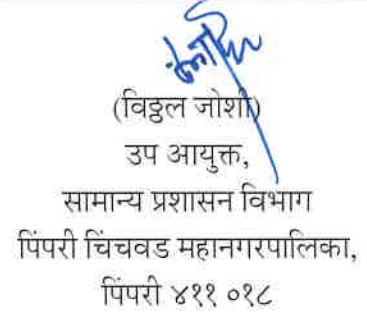 (विठ्ठल जोशी)
उप आयुक्त,
सामान्य प्रशासन विभाग
पिंपरी चिंचवड महानगरपालिका,
पिंपरी ४११ ०१८